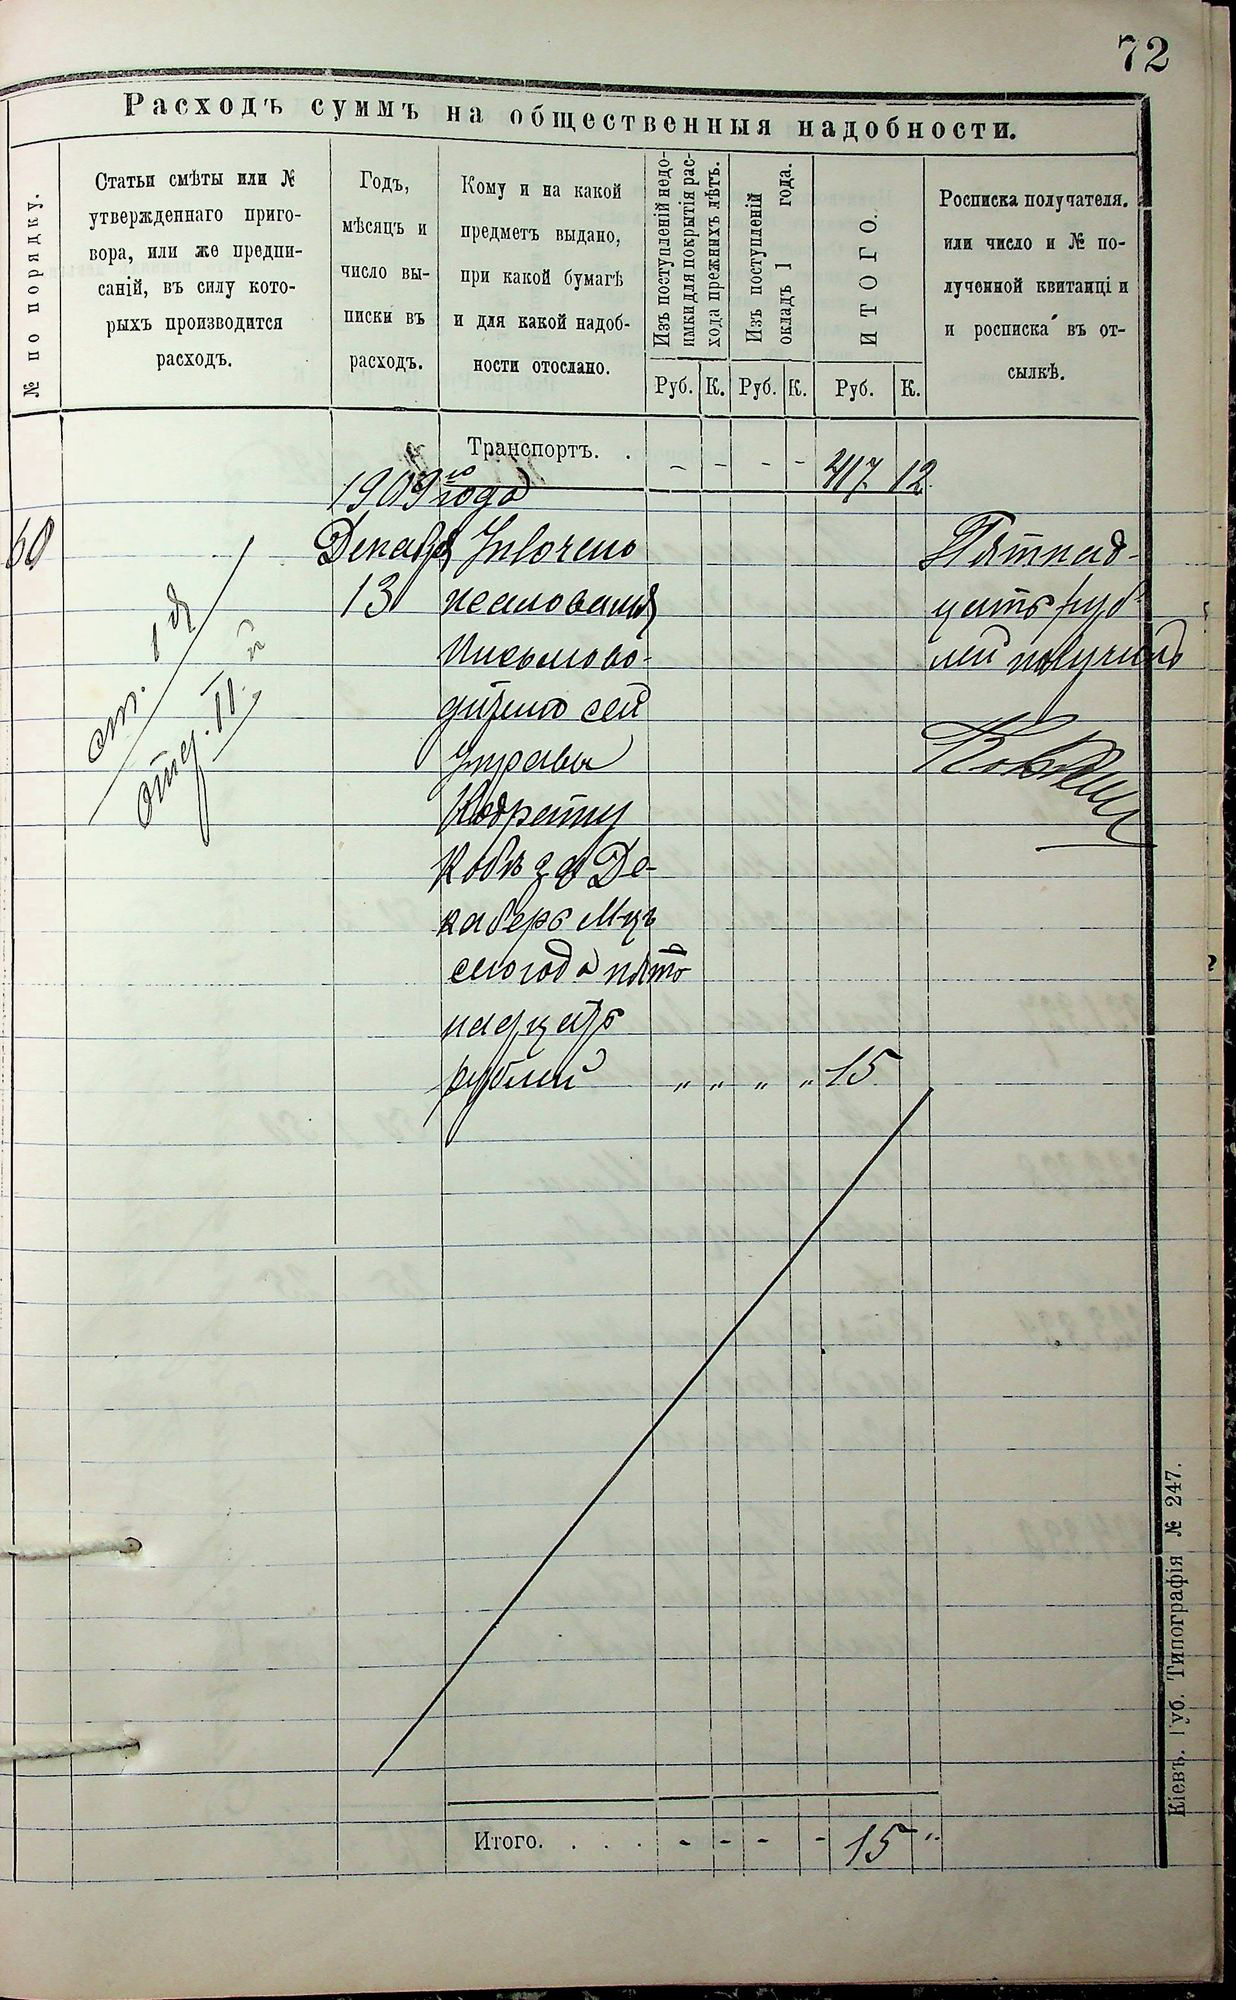 72
Расходъ суммъ на общественныя надобности.
№ по порядку.
Статьи смѣты или №
утвержденнаго приго-
вора, или же предпи-
саній, въ силу кото-
рыхъ производится
расходъ.
Годъ,
мѣсяцъ и
число вы-
писки въ
расходъ.
Кому и на какой
предметъ выдано,
при какой бумагѣ
и для какой надоб-
ности отослано.
Изъ поступленій недо-
имки для покрытія рас-
хода прежнихъ лѣтъ.
Изъ поступленій
окладъ 1 года.
ИТОГО.
Росписка получателя.
или число и № по-
лученной квитанці и
и росписка въ от-
сылкѣ.
Руб. К. Руб. К. Руб. К.
Транспортъ. . - - - - 417 12
1909 го года
60
Декабря
13
ст. 1 я
отд. II й
жалованья
письмово-
дителю сей
управы
Де-
каберь М-цъ
сего года пят
надцать
рублей " " " " 15
Пятнад-
цать руб-
лей получилъ
Итого. . . . - - - - 15 "
Кіевъ. Губ. Типографія № 247.